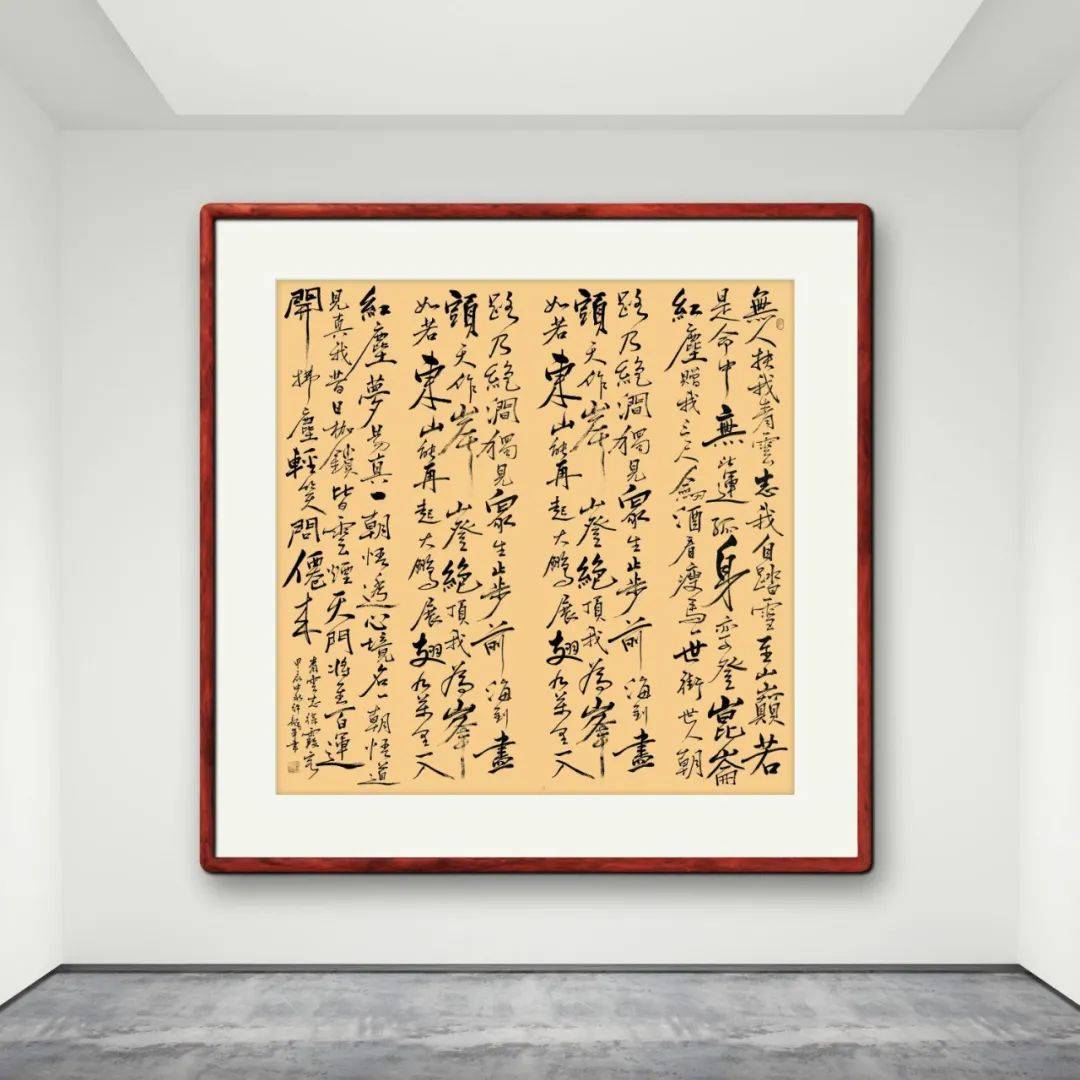 無人扶我青雲志我自踏雪至山巔若
是命中無此運孤身亦登崑崙
紅塵贈我三尺劍酒看瘦馬世街世人朝
路乃絕澗獨見眾生止步前海到盡
頭天作岸山登絕頂我為峯
如若東山能再起大鵬展翅九萬里一入
路乃絕澗獨見眾生止步前海到盡
頭天作岸山登絕頂我為峯
如若東山能再起大鵬展翅九萬里一入
紅塵夢易真一朝悟透心境名一朝悟道
見真我昔日枷鎖皆雲煙天門將至百運
開拂塵輕笑問僊來
青雲志徐霞客
甲辰中秋許書